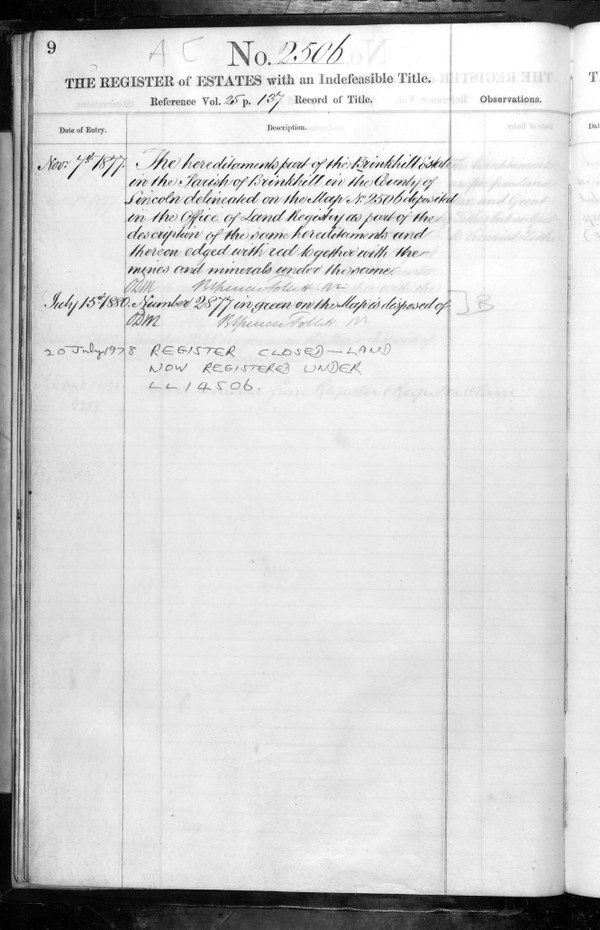 9
A C No. 2506
THE REGISTER of ESTATES with an Indefeasible Title.
Reference Vol. 25 p. 137 Record of Title.
Observations.
Date of Entry.
Description.
Nov: 7th 1877. The hereditaments part of the Brinkhill Estate
in the Parish of Brinkhill in the County of
Lincoln delineated on the Map No. 2506 deposited
in the Office of Land Registry as part of the
description of the same hereditaments and
thereon edged with red together with the
mines and minerals under the same
Follett
July 15th 1880. Number 2877 in green on the Map is disposed of ] B
Follett
20 July 1978 REGISTER CLOSED — LAND
NOW REGISTERED UNDER
LL14506.